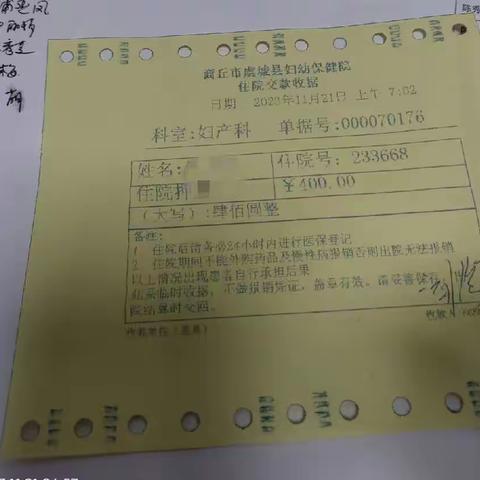 商丘市虞城县妇幼保健院
住院交款收据
日期 2023年11月21日 上午 7:02
科室:妇产科 单据号:000070176
姓名: 住院号: 233668
住院押 ￥400.00
(大写):肆佰圆整
备注:
1 住院后请务必24小时内进行医保登记
2 住院期间不能外购药品及慢性病报销否则出院无法报销
以上情况出现患者自行承担后果
临时收据, 不做报销凭证, 盖章有效。请妥善保存
院结算时交回。
收款单位(盖章) 收款人